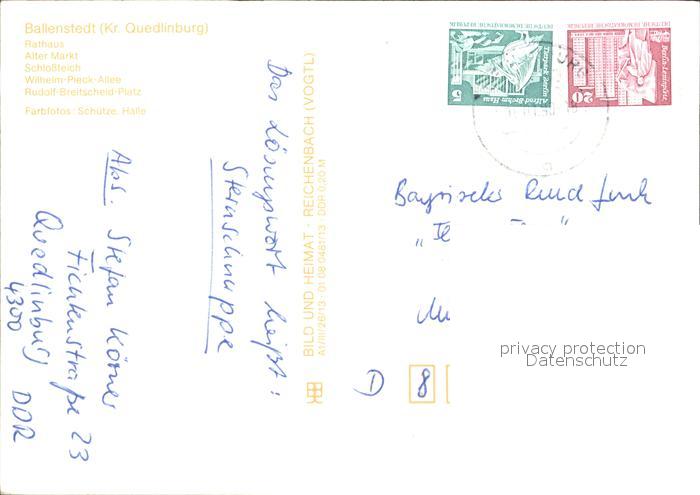 Ballenstedt (Kr. Quedlinburg)
Rathaus
Alter Markt
Schloßteich
Wilhelm-Pieck-Allee
Rudolf-Breitscheid-Platz
Farbfotos: Schütze, Halle
Das Lösungswort heißt:
Sternschnuppe
Abs. Stefan Körner
Fichtenstraße 23
Quedlinburg
4300 DDR
BILD UND HEIMAT · REICHENBACH (VOGTL)
A1/III/26/13 · 01 08 0481/13 · DDR 0,20 M
DEUTSCHE DEMOKRATISCHE REPUBLIK
Tierpark Berlin
Alfred-Brehm-Haus
5
DEUTSCHE DEMOKRATISCHE REPUBLIK
Berlin-Leninplatz
20
Bayrischer Rundfunk
D 8
privacy protection
Datenschutz